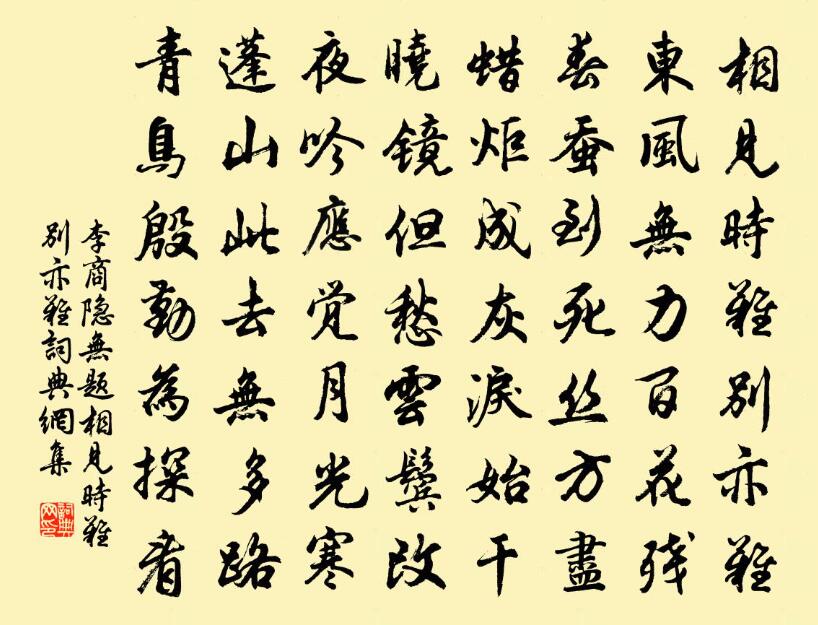 相見时難别亦難
東風無力百花残
春蚕到死丝方盡
蜡炬成灰淚始干
曉镜但愁雲鬓改
夜吟應觉月光寒
蓬山此去無多路
青鳥殷勤為探看
李商隐無题相見时難
别亦難詞典網集
詞典網印